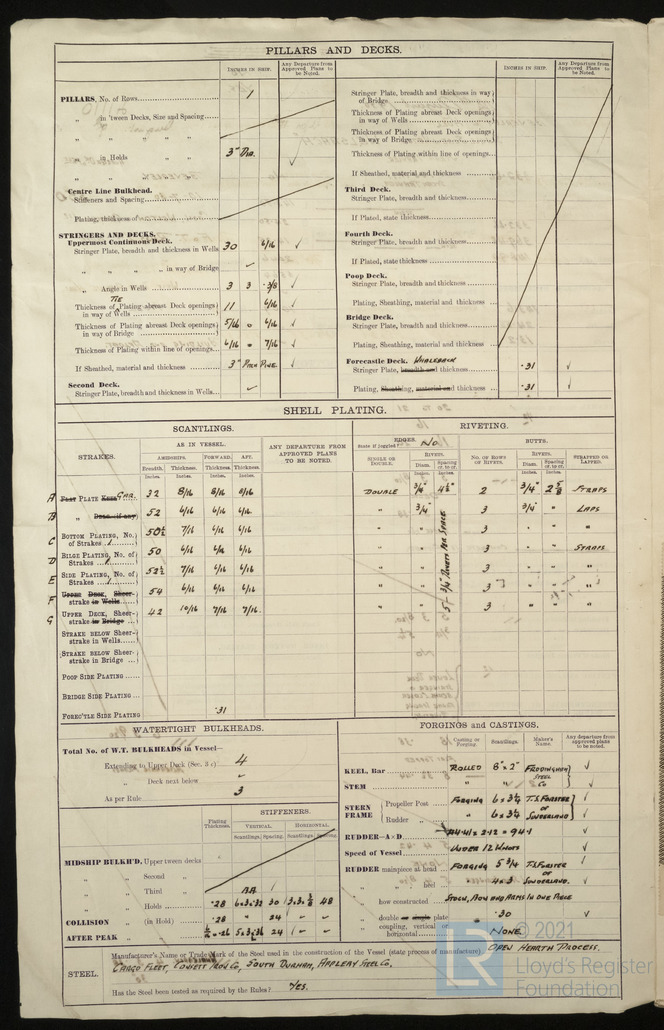 PILLARS AND DECKS.
INCHES IN SHIP.
Any Departure from Approved Plans to be Noted.
PILLARS, No. of Rows 1
„ in 'tween Decks, Size and Spacing
„ „ „ „
„ in Holds 3" Dia. ✓
„ „
Centre Line Bulkhead.
Stiffeners and Spacing
Plating, thickness of
STRINGERS AND DECKS.
Uppermost Continuous Deck.
Stringer Plate, breadth and thickness in Wells 30 6/16 ✓
„ „ „ „ in way of Bridge ✓
„ Angle in Wells 3 3 3/8 ✓
Thickness of TIE Plating abreast Deck openings in way of Wells 11 6/16 ✓
Thickness of Plating abreast Deck openings in way of Bridge 5/16 6/16 ✓
Thickness of Plating within line of openings 6/16 7/16
If Sheathed, material and thickness 3" PITCH PINE. ✓
Second Deck.
Stringer Plate, breadth and thickness in Wells ✓
INCHES IN SHIP.
Any Departure from Approved Plans to be Noted.
Stringer Plate, breadth and thickness in way of Bridge
Thickness of Plating abreast Deck openings in way of Wells
Thickness of Plating abreast Deck openings in way of Bridge
Thickness of Plating within line of openings
If Sheathed, material and thickness
Third Deck.
Stringer Plate, breadth and thickness
If Plated, state thickness
Fourth Deck.
Stringer Plate, breadth and thickness
If Plated, state thickness
Poop Deck.
Stringer Plate, breadth and thickness
Plating, Sheathing, material and thickness
Bridge Deck.
Stringer Plate, breadth and thickness
Plating, Sheathing, material and thickness
Forecastle Deck. WHALEBACK
Stringer Plate, breadth and thickness .31 ✓
Plating, Sheathing, material and thickness .31 ✓
SHELL PLATING.
SCANTLINGS.
RIVETING.
STRAKES.
AS IN VESSEL.
AMIDSHIPS. FORWARD. AFT.
Breadth. Thickness. Thickness. Thickness.
Inches. Inches. Inches. Inches.
ANY DEPARTURE FROM APPROVED PLANS TO BE NOTED.
EDGES.
State if joggled? No.
BUTTS.
SINGLE OR DOUBLE.
RIVETS.
Diam. Spacing cr. to cr.
NO. OF ROWS OF RIVETS.
RIVETS.
Diam. Spacing cr. to cr.
STRAPPED OR LAPPED.
A Flat PLATE Keel GAR. 32 8/16 8/16 8/16 DOUBLE 3/4" 4½" 2 3/4" 2 5/8 STRAPS
B „ Doub. (if any) 52 6/16 6/16 6/16 „ 3/4" 3 3/4" „ LAPS
C BOTTOM PLATING, No. of Strakes 1 50½ 7/16 6/16 6/16 „ „ 3 „ „ „
D BILGE PLATING, No. of Strakes 1 50 6/16 6/16 6/16 „ „ 3 „ „ STRAPS
E SIDE PLATING, No. of Strakes 1 52½ 7/16 6/16 6/16 „ „ 3 „ „ „
F UPPER DECK, Sheer-strake in Wells 54 6/16 6/16 6/16 „ „ 3 „ „ „
G UPPER DECK, Sheer-strake in Bridge 42 10/16 7/16 7/16 „ „ 3 „ „ „
STRAKE BELOW SHEER-strake in Wells
STRAKE BELOW SHEER-strake in Bridge
POOP SIDE PLATING
BRIDGE SIDE PLATING
FORECTLE SIDE PLATING .31
WATERTIGHT BULKHEADS.
Total No. of W.T. BULKHEADS in Vessel—
Extending to Upper Deck (Sec. 3 c) 4
„ Deck next below ✓
As per Rule 3
Plating Thickness.
STIFFENERS.
VERTICAL. HORIZONTAL.
Scantlings. Spacing. Scantlings. Spacing.
MIDSHIP BULKH'D, Upper tween decks
„ „ Second „
„ „ Third „
„ „ Holds .28 6x3x.32 30 48
COLLISION „ (in Hold) .28 „ 24 „ „
AFTER PEAK „ „ 24 „ „
FORGINGS and CASTINGS.
Casting or Forging.
Scantlings.
Maker's Name.
Any departure from approved plans to be noted.
KEEL, Bar ROLLED 8"x2" FRODINGHAM STEEL CO ✓
STEM „ „ ✓
STERN FRAME { Propeller Post FORGING 6x3¼ T.S. FORSTER OF SUNDERLAND ✓
Rudder „ „ 6x3¼
RUDDER—A×D
Speed of Vessel UNDER 12 KNOTS
RUDDER mainpiece at head FORGING 5¾ T.S. FORSTER OF SUNDERLAND. ✓
„ „ heel „ 4x3
„ how constructed STOCK, BOW AND ARMS IN ONE PIECE
„ double or single plate .30 ✓
„ coupling, vertical or horizontal NONE.
STEEL.
Manufacturer's Name or Trade Mark of the Steel used in the construction of the Vessel (state process of manufacture) OPEN HEARTH PROCESS.
CARGO FLEET, CONSETT IRON CO, SOUTH DURHAM, APPLEBY STEEL CO,
Has the Steel been tested as required by the Rules? YES.
© 2021
Lloyd's Register
Foundation
LR